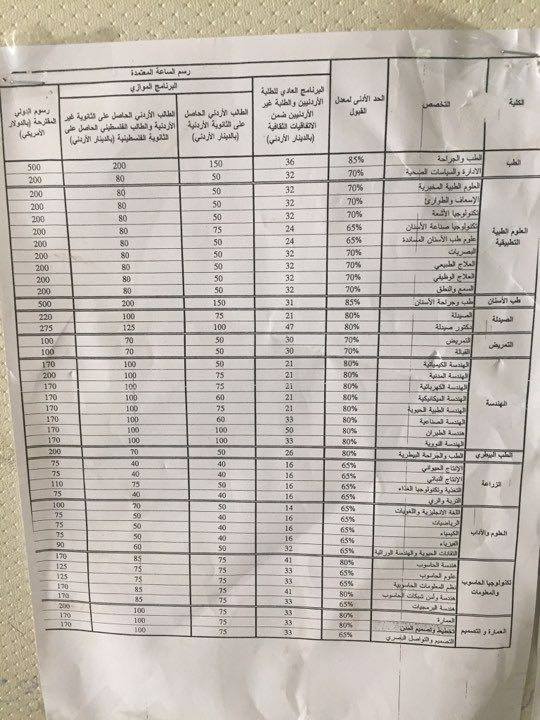 رسم الساعة المعتمدة
الكلية التخصص الحد الأدنى لمعدل القبول البرنامج العادي للطلبة الأردنيين والطلبة غير الأردنيين ضمن الاتفاقيات الثقافية (بالدينار الأردني) البرنامج الموازي رسوم الدولي المقترحة (بالدولار الأمريكي)
الطالب الأردني الحاصل على الثانوية الأردنية (بالدينار الأردني) الطالب الأردني الحاصل على الثانوية غير الأردنية و الطالب الفلسطيني الحاصل على الثانوية الفلسطينية (بالدينار الأردني)
الطب الطب والجراحة 85% 36 150 200 500
الادارة والسياسات الصحية 70% 32 50 80 200
العلوم الطبية التطبيقية العلوم الطبية المخبرية 70% 32 50 80 200
الإسعاف والطوارئ 70% 32 50 80 200
تكنولوجيا الأشعة 70% 32 50 80 200
تكنولوجيا صناعة الأسنان 65% 24 75 80 200
علوم طب الأسنان المساندة 65% 24 50 80 200
البصريات 70% 32 50 80 200
العلاج الطبيعي 70% 32 50 80 200
العلاج الوظيفي 70% 32 50 80 200
السمع والنطق 70% 32 50 80 200
طب الأسنان طب وجراحة الأسنان 85% 31 150 200 500
الصيدلة الصيدلة 80% 21 75 100 220
دكتور صيدلة 80% 47 100 125 275
التمريض التمريض 70% 30 50 70 100
القبالة 70% 30 50 70 100
الهندسة الهندسة الكيميائية 80% 21 50 100 170
الهندسة المدنية 80% 21 75 100 200
الهندسة الكهربائية 80% 21 75 100 170
الهندسة الميكانيكية 80% 21 60 100 170
الهندسة الطبية الحيوية 80% 21 75 100 170
الهندسة الصناعية 80% 33 60 100 170
هندسة الطيران 80% 50 100 100 170
الهندسة النووية 80% 33 100 100 170
الطب البيطري الطب والجراحة البيطرية 80% 26 50 70 200
الزراعة الإنتاج الحيواني 65% 16 40 40 75
الإنتاج النباتي 65% 16 40 40 75
التغذية وتكنولوجيا الغذاء 65% 16 50 75 110
التربة والري 65% 16 40 40 75
العلوم والآداب اللغة الانجليزية واللغويات 65% 14 50 70 100
الرياضيات 65% 16 40 50 75
الكيمياء 65% 16 40 50 75
الفيزياء 65% 16 40 50 75
التقانات الحيوية والهندسة الوراثية 65% 32 50 60 90
تكنولوجيا الحاسوب والمعلومات هندسة الحاسوب 80% 41 75 85 170
علوم الحاسوب 65% 33 75 75 125
نظم المعلومات الحاسوبية 65% 33 75 75 125
هندسة وأمن شبكات الحاسوب 80% 41 75 85 170
هندسة البرمجيات 65% 33 75 85 170
العمارة و التصميم العمارة 80% 33 75 100 200
تخطيط وتصميم المدن 80% 33 75 100 170
التصميم والتواصل البصري 65% 33 75 100 170